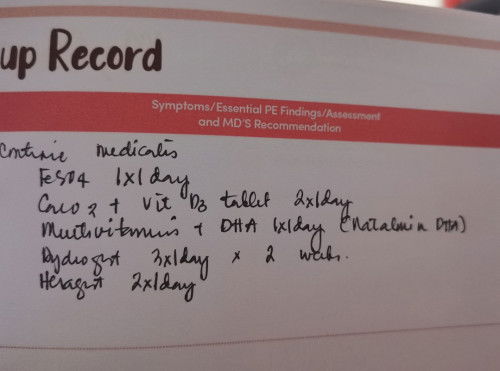 up Record
Symptoms/Essential PE Findings/Assessment
and MD'S Recommendation
medicatis
FeSO4 1x1 day
CaCO3 + Vit D3 tablet 2x1day
Multivitamins + DHA 1x1day (Natalmin DHA)
3x1day x 2 weeks.
2x1day